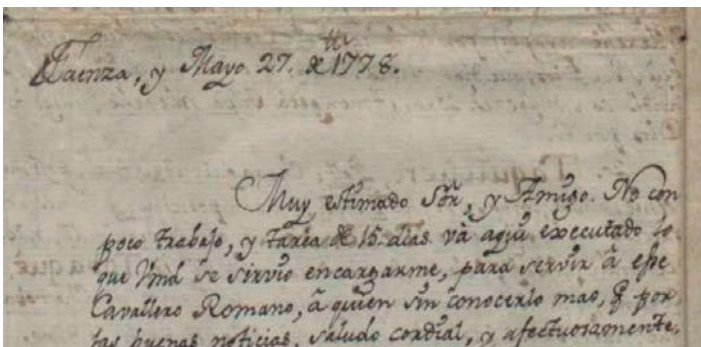 Faenza, y Mayo 27. de 1778.
Muy estimado Sōr, y Amigo. No con
poco trabajo, y tarea de 15. dias và aqui executado lo
que Vmd se sirvió encargarme, para servir à ese
Cavallero Romano, à quien sin conocerlo mas, q̃ por
las buenas noticias, saludo cordial, y afectuosamente.